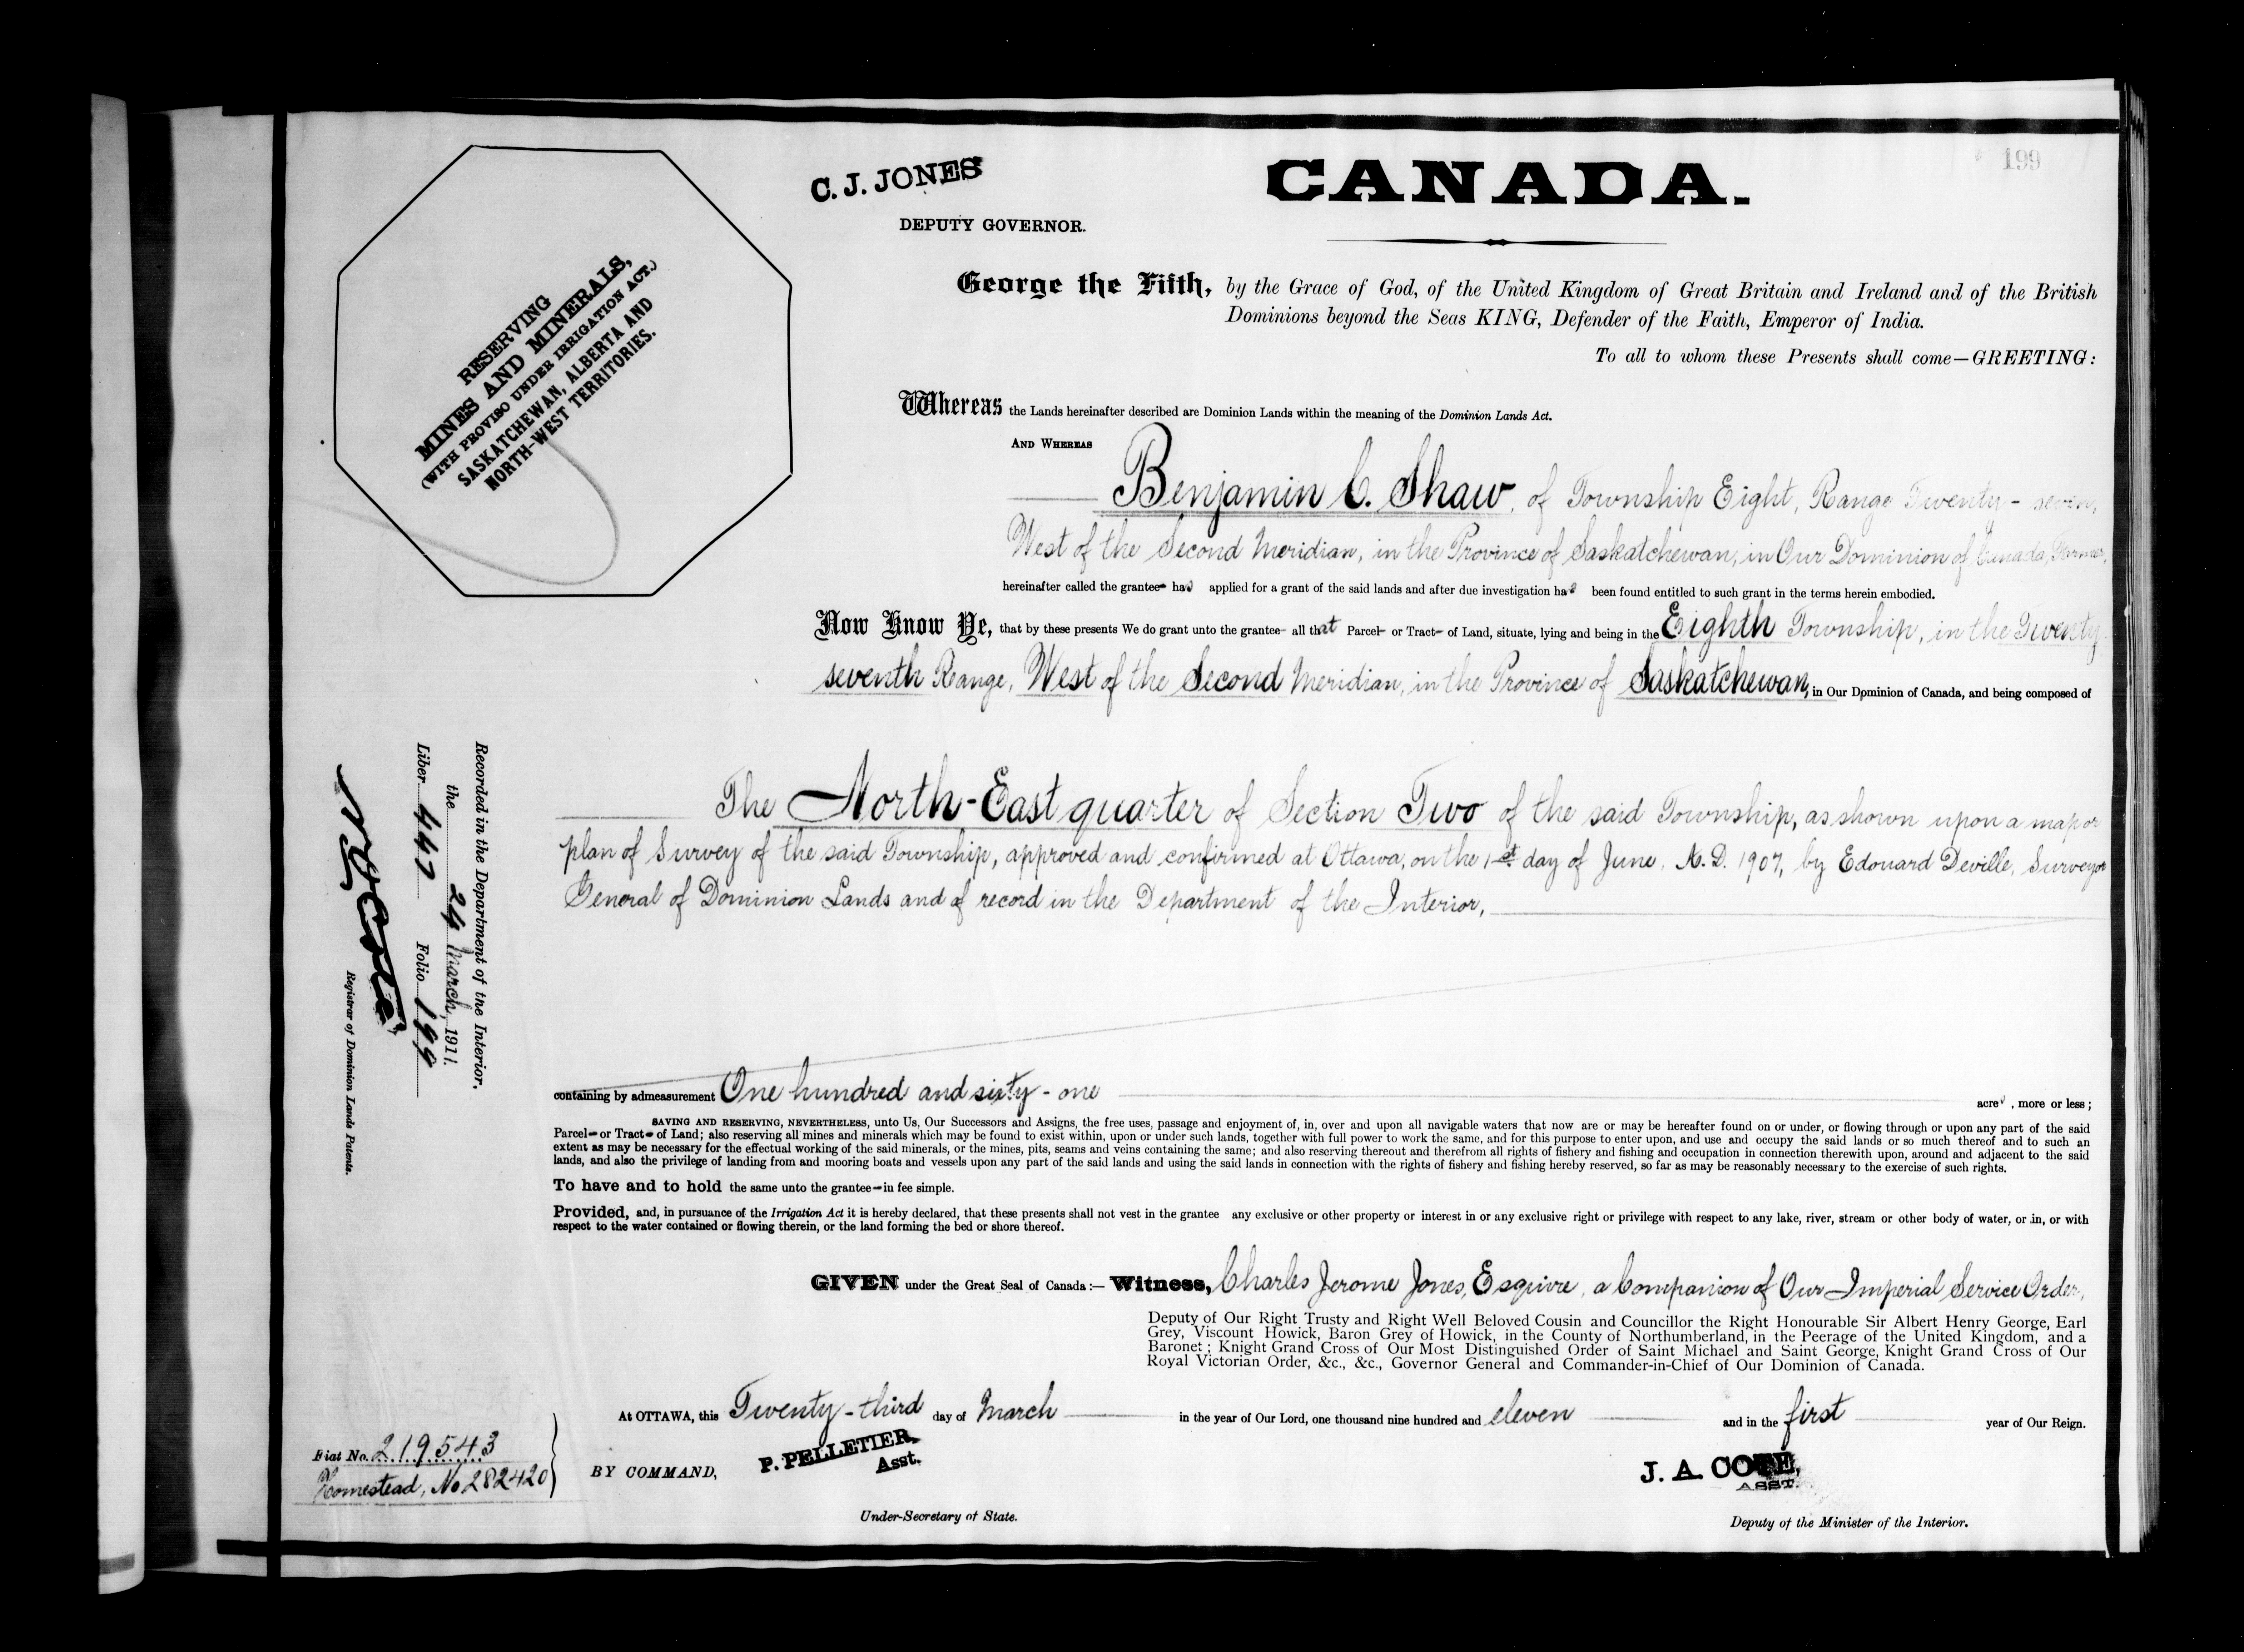 199
C. J. JONES
DEPUTY GOVERNOR.
CANADA.
RESERVING
MINES AND MINERALS,
(WITH PROVISO UNDER IRRIGATION ACT.)
SASKATCHEWAN, ALBERTA AND
NORTH-WEST TERRITORIES.
George the Fifth, by the Grace of God, of the United Kingdom of Great Britain and Ireland and of the British
Dominions beyond the Seas KING, Defender of the Faith, Emperor of India.
To all to whom these Presents shall come—GREETING:
Whereas the Lands hereinafter described are Dominion Lands within the meaning of the Dominion Lands Act.
AND WHEREAS
Benjamin C. Shaw, of Township Eight, Range Twenty-seven,
West of the Second Meridian, in the Province of Saskatchewan, in Our Dominion of Canada, Farmer,
hereinafter called the grantee has applied for a grant of the said lands and after due investigation has been found entitled to such grant in the terms herein embodied.
Now Know Ye, that by these presents We do grant unto the grantee all that Parcel or Tract of Land, situate, lying and being in the Eighth Township, in the Twenty
seventh Range, West of the Second Meridian, in the Province of Saskatchewan, in Our Dominion of Canada, and being composed of
The North-East quarter of Section Two of the said Township, as shown upon a map or
plan of Survey of the said Township, approved and confirmed at Ottawa, on the 1st day of June, A.D. 1907, by Edouard Deville, Surveyor
General of Dominion Lands and of record in the Department of the Interior,
containing by admeasurement One hundred and sixty-one acres, more or less;
SAVING AND RESERVING, NEVERTHELESS, unto Us, Our Successors and Assigns, the free uses, passage and enjoyment of, in, over and upon all navigable waters that now are or may be hereafter found on or under, or flowing through or upon any part of the said
Parcel or Tract of Land; also reserving all mines and minerals which may be found to exist within, upon or under such lands, together with full power to work the same, and for this purpose to enter upon, and use and occupy the said lands or so much thereof and to such an
extent as may be necessary for the effectual working of the said minerals, or the mines, pits, seams and veins containing the same; and also reserving thereout and therefrom all rights of fishery and fishing and occupation in connection therewith upon, around and adjacent to the said
lands, and also the privilege of landing from and mooring boats and vessels upon any part of the said lands and using the said lands in connection with the rights of fishery and fishing hereby reserved, so far as may be reasonably necessary to the exercise of such rights.
To have and to hold the same unto the grantee in fee simple.
Provided, and, in pursuance of the Irrigation Act it is hereby declared, that these presents shall not vest in the grantee any exclusive or other property or interest in or any exclusive right or privilege with respect to any lake, river, stream or other body of water, or in, or with
respect to the water contained or flowing therein, or the land forming the bed or shore thereof.
GIVEN under the Great Seal of Canada:— Witness, Charles Jerome Jones, Esquire, a Companion of Our Imperial Service Order,
Deputy of Our Right Trusty and Right Well Beloved Cousin and Councillor the Right Honourable Sir Albert Henry George, Earl
Grey, Viscount Howick, Baron Grey of Howick, in the County of Northumberland, in the Peerage of the United Kingdom, and a
Baronet; Knight Grand Cross of Our Most Distinguished Order of Saint Michael and Saint George, Knight Grand Cross of Our
Royal Victorian Order, &c., &c., Governor General and Commander-in-Chief of Our Dominion of Canada.
At OTTAWA, this Twenty-third day of March in the year of Our Lord, one thousand nine hundred and eleven and in the first year of Our Reign.
BY COMMAND,
P. PELLETIER,
Asst.
Under-Secretary of State.
J. A. COTE,
ASST.
Deputy of the Minister of the Interior.
Recorded in the Department of the Interior,
the 24 March, 1911.
Liber 447 Folio 199
Registrar of Dominion Lands Patents.
Fiat No. 219543
Homestead, No 282420